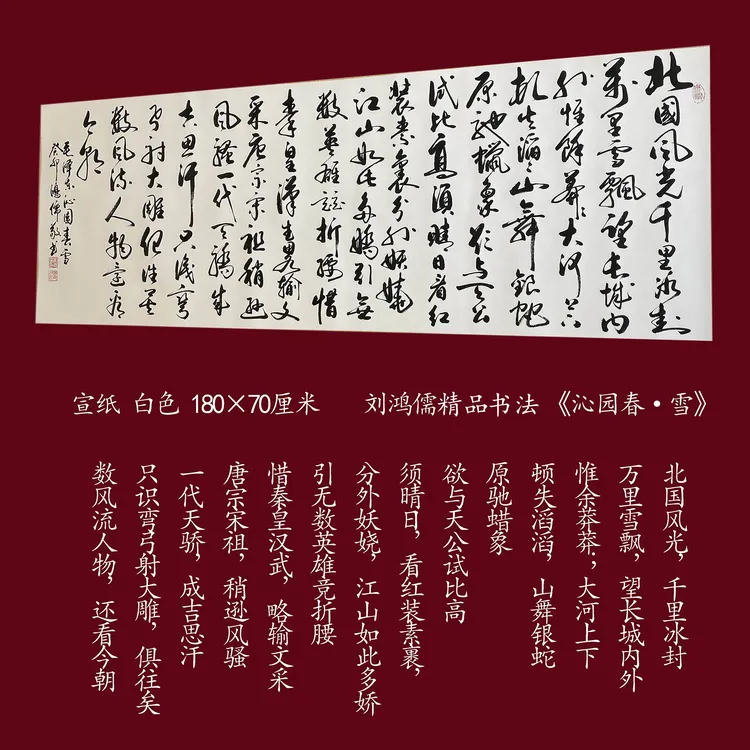 北國风光千里冰封
萬里雪飄望长城内
外惟餘莽莽大河上下
顿失滔滔山舞銀蛇
原驰蠟象欲与天公
试比高須晴日看红
装素裹分外妖娆
江山如此多嬌引無
数英雄竞折腰惜
秦皇漢武畧输文
采唐宗宋祖稍逊
风骚一代天骄成
吉思汗只识彎
弓射大雕俱往矣
数风流人物还看
今朝
毛泽东沁园春雪
癸卯鸿儒敬书
宣纸 白色 180×70厘米 刘鸿儒精品书法《沁园春·雪》
北国风光，千里冰封
万里雪飘，望长城内外
惟余莽莽；大河上下
顿失滔滔，山舞银蛇
原驰蜡象
欲与天公试比高
须晴日，看红装素裹，
分外妖娆，江山如此多娇
引无数英雄竞折腰
惜秦皇汉武，略输文采
唐宗宋祖，稍逊风骚
一代天骄，成吉思汗
只识弯弓射大雕，俱往矣
数风流人物，还看今朝